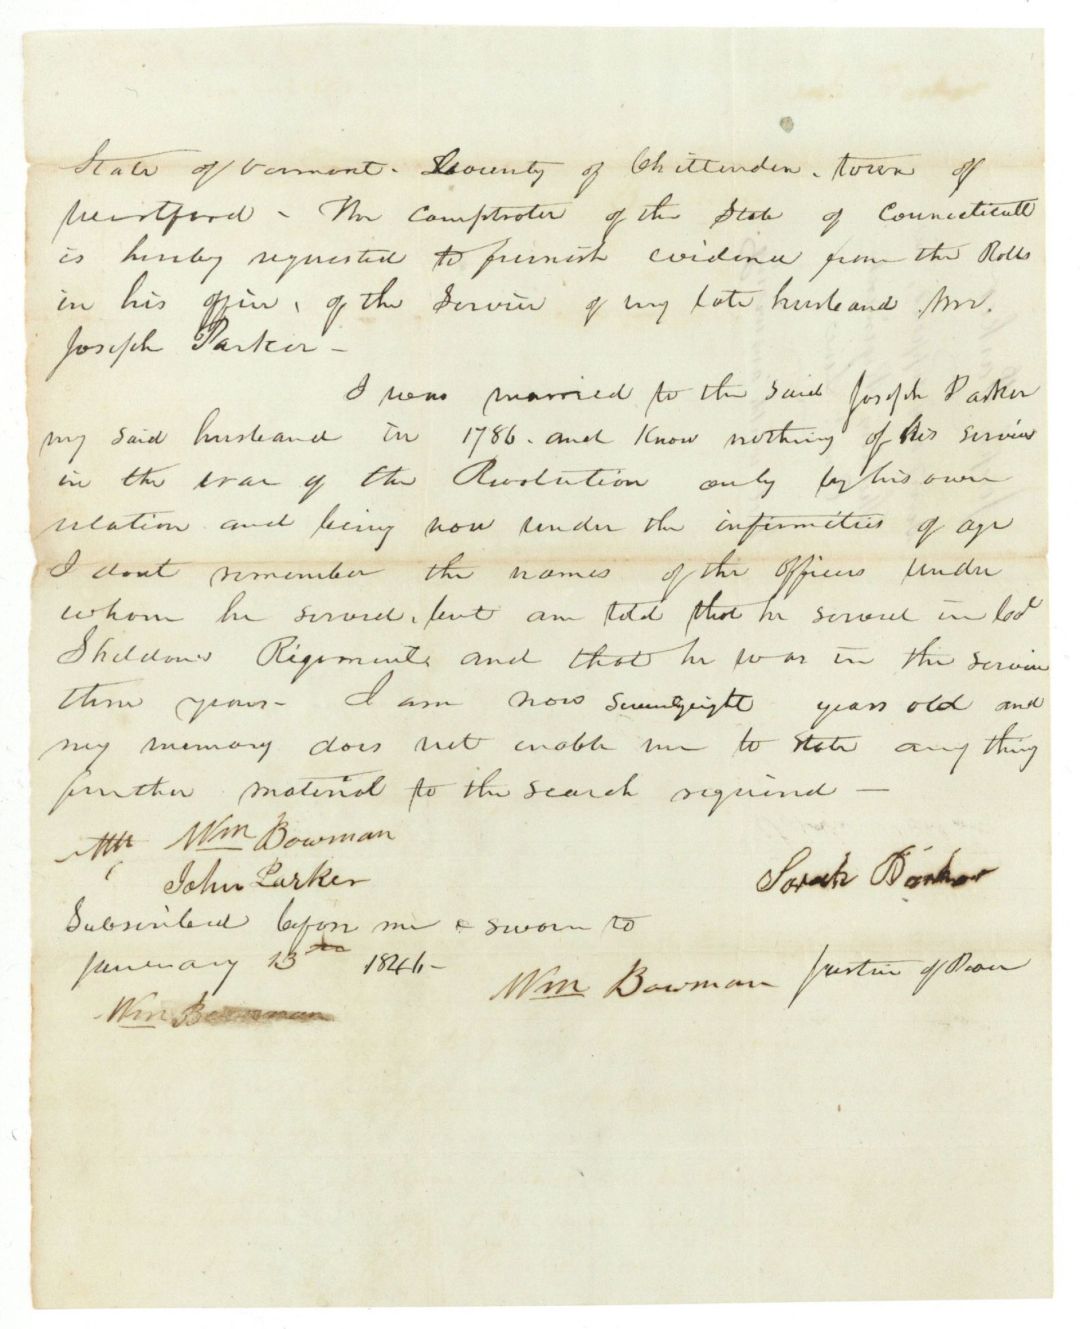 State of Vermont. County of Chittenden. town of
Westford - The Comptroler of the State of Connecticutt
is hereby requested to furnish evidence from the Rolls
in his office, of the Service of my late husband Mr.
Joseph Parker -
I was married to the said Joseph Parker
my said husband in 1786. and Know nothing of his service
in the war of the Revolution only by his own
relation and being now under the infirmities of age
I dont remember the names of the officers under
whom he served, but am told that he served in Col
Sheldons Regiment and that he was in the service
three years - I am now seventyeight years old and
my memory does not enable me to state any thing
further material to the search required -
Wm Bowman
John Parker
Sarah Parker
Subscribed before me & sworn to
January 13th 1846 -
Wm Bowman Justice of Peace
Wm Bowman